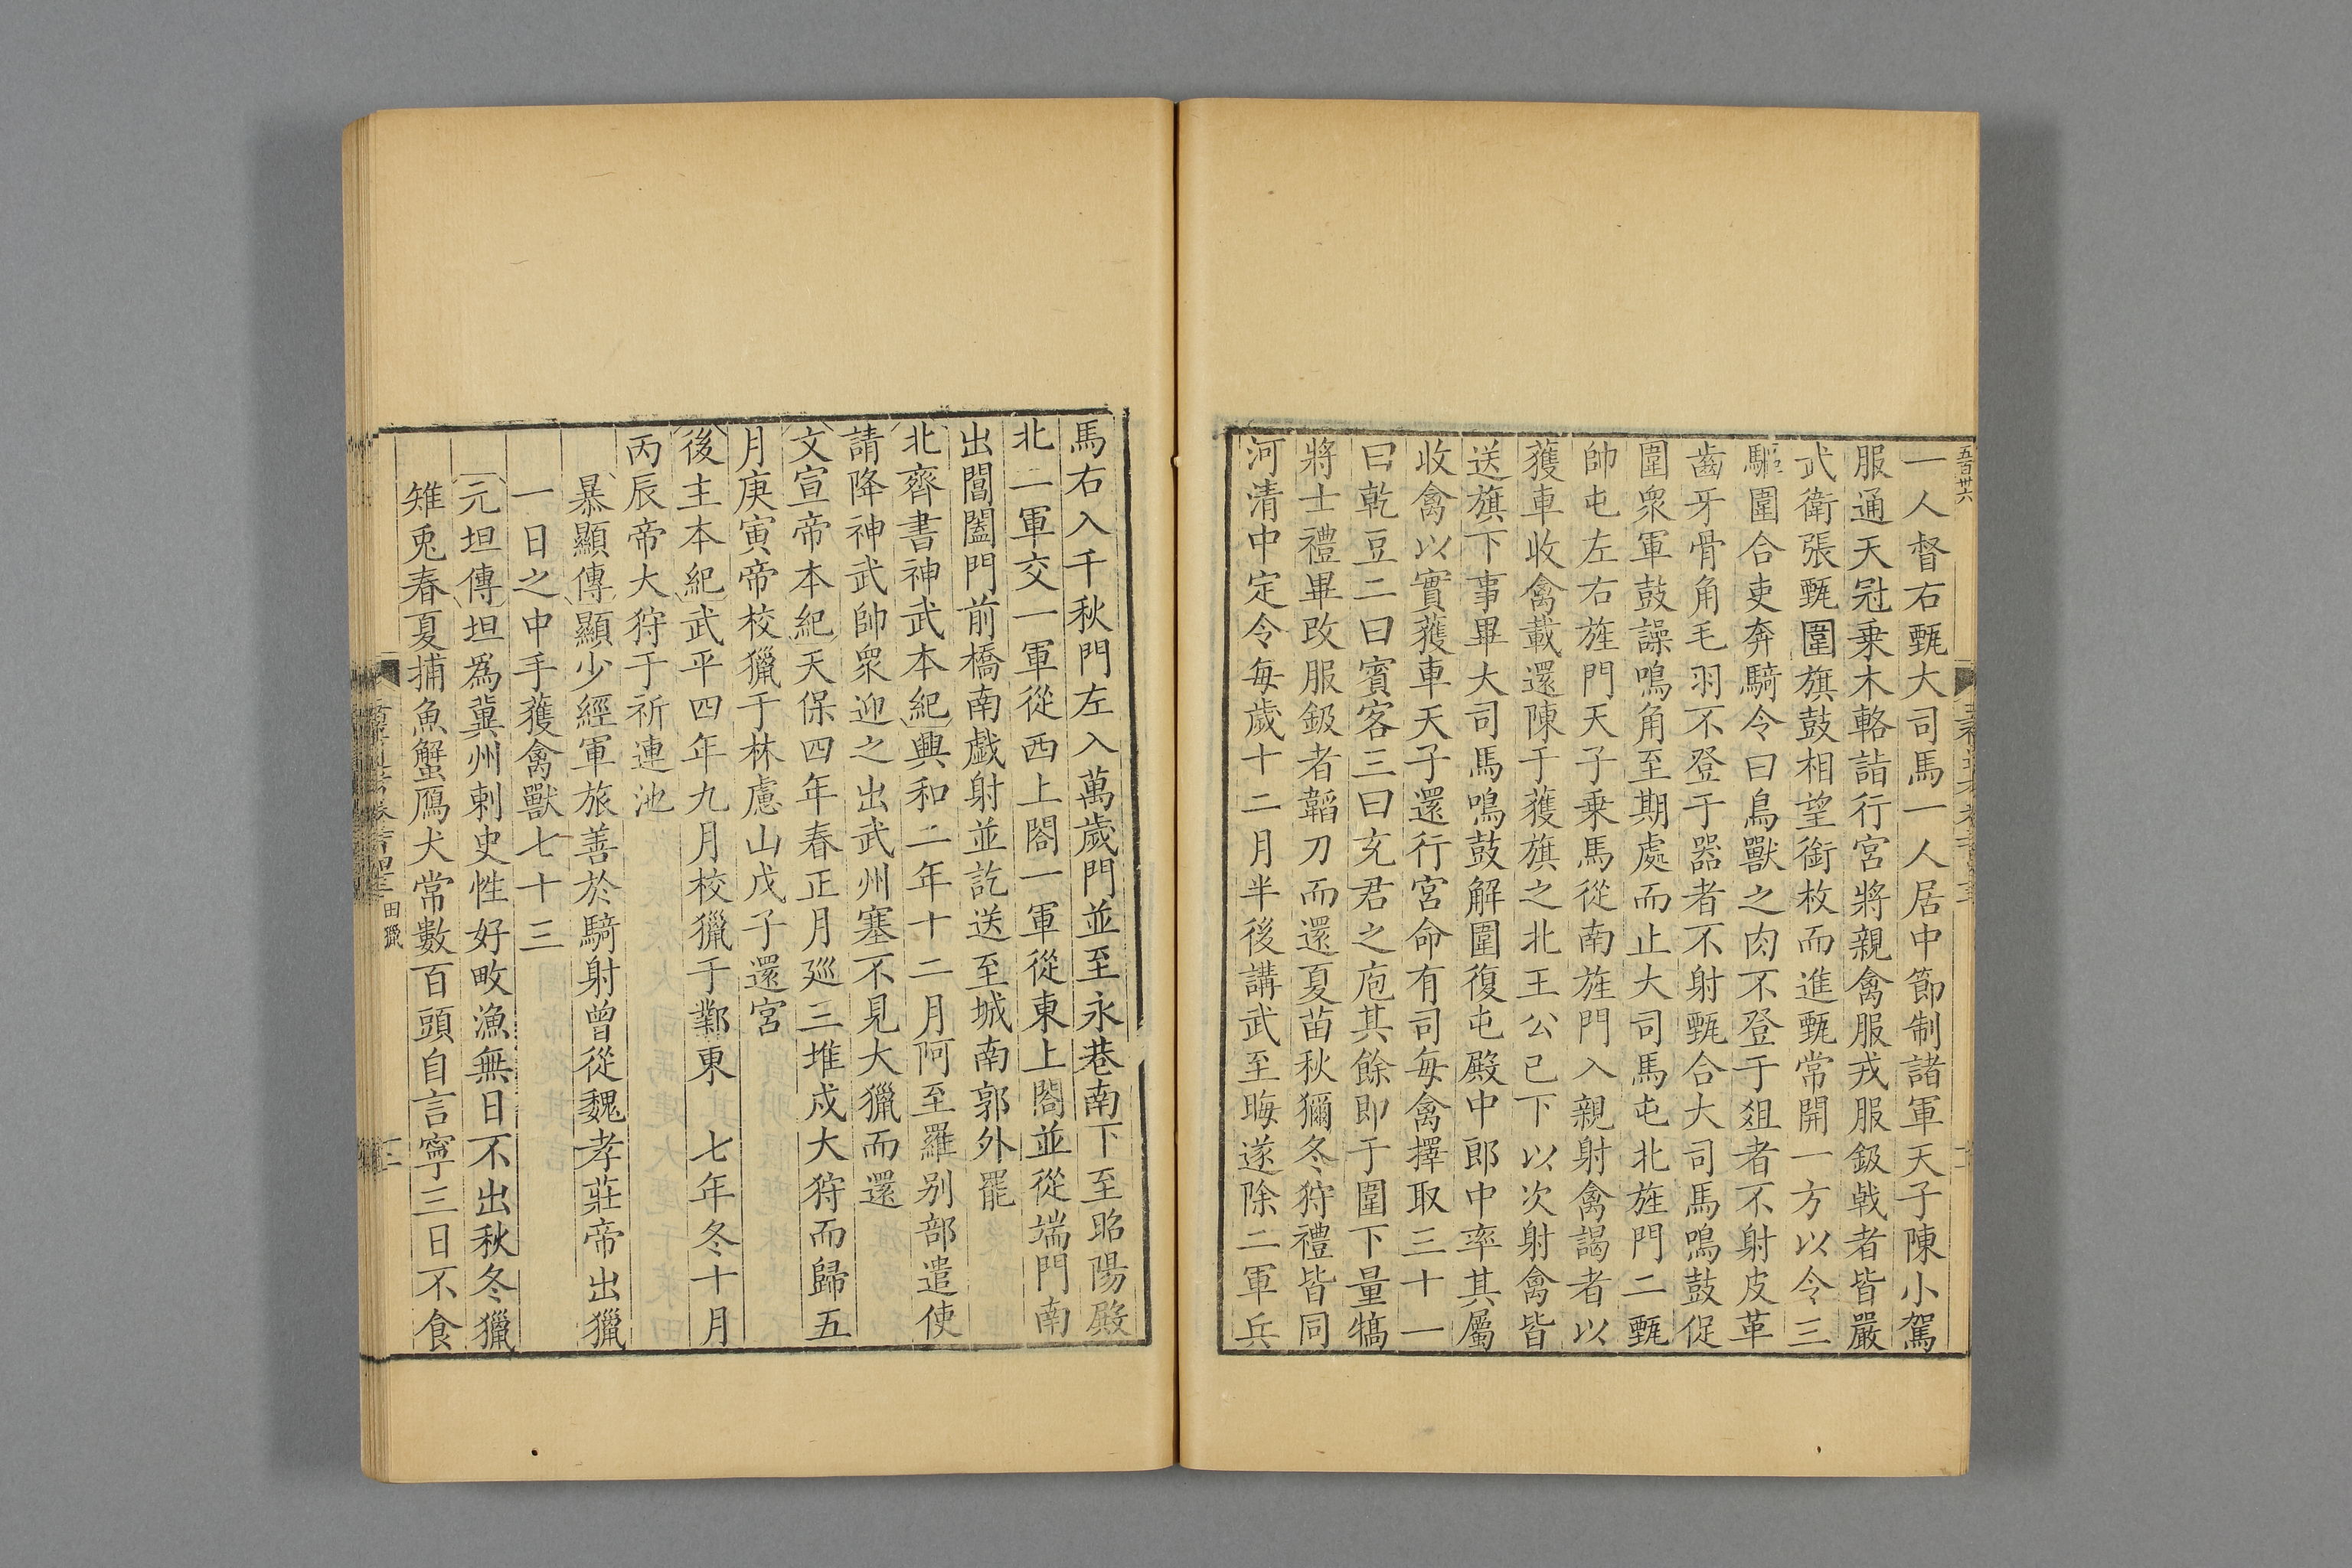 五百卅六
一人督右甄大司馬一人居中節制諸軍天子陳小駕
服通天冠乗木輅詣行宮將親禽服戎服鈒戟者皆嚴
武衛張甄圍旗鼓相望銜枚而進甄常開一方以令三
驅圍合吏奔騎令曰鳥獸之肉不登于俎者不射皮革
齒牙骨角毛羽不登于器者不射甄合大司馬鳴鼓促
圍衆軍鼓譟鳴角至期處而止大司馬屯北旌門二甄
帥屯左右旌門天子乗馬從南旌門入親射禽謁者以
獲車收禽載還陳于獲旗之北王公已下以次射禽皆
送旗下事畢大司馬鳴鼓解圍復屯殿中郎中率其屬
收禽以實獲車天子還行宮命有司每禽擇取三十一
曰乾豆二曰賓客三曰充君之庖其餘即于圍下量犒
將士禮畢改服鈒者韜刀而還夏苗秋獮冬狩禮皆同
河清中定令每歲十二月半後講武至晦遂除二軍兵
馬右入千秋門左入萬歲門並至永巷南下至昭陽殿
北二軍交一軍從西上閤一軍從東上閤並從端門南
出閶闔門前橋南戲射並訖送至城南郭外罷
北齊書神武本紀興和二年十二月阿至羅别部遣使
請降神武帥衆迎之出武州塞不見大獵而還
文宣帝本紀天保四年春正月廵三堆戍大狩而歸五
月庚寅帝校獵于林慮山戊子還宮
後主本紀武平四年九月校獵于鄴東 七年冬十月
丙辰帝大狩于祈連池
暴顯傳顯少經軍旅善於騎射曾從魏孝莊帝出獵
一日之中手獲禽獸七十三
元坦傳坦爲冀州剌史性好畋漁無日不出秋冬獵
雉兎春夏捕魚蟹鴈犬常數百頭自言寧三日不食
田獵